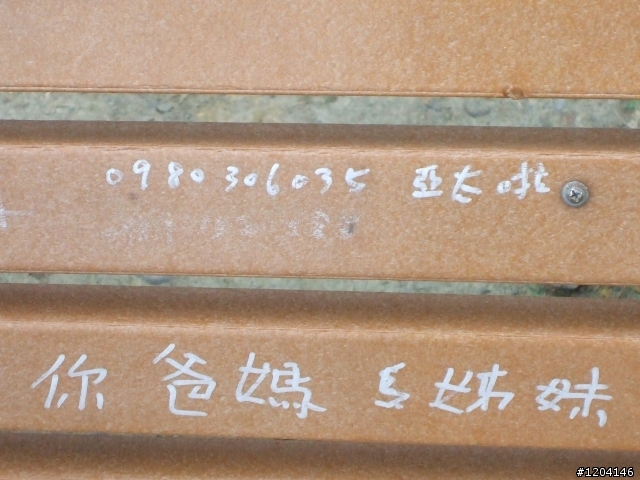 0980306035 亞太啦
你爸媽 5姊妹
#1204146